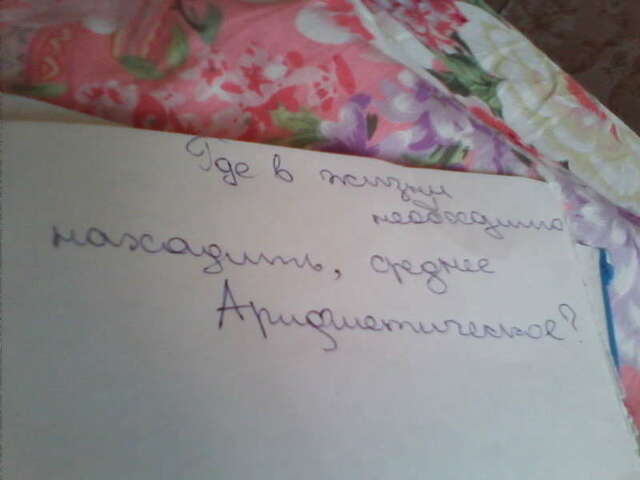 Где в жизни
необходимо
находить, среднее
Арифметическое?